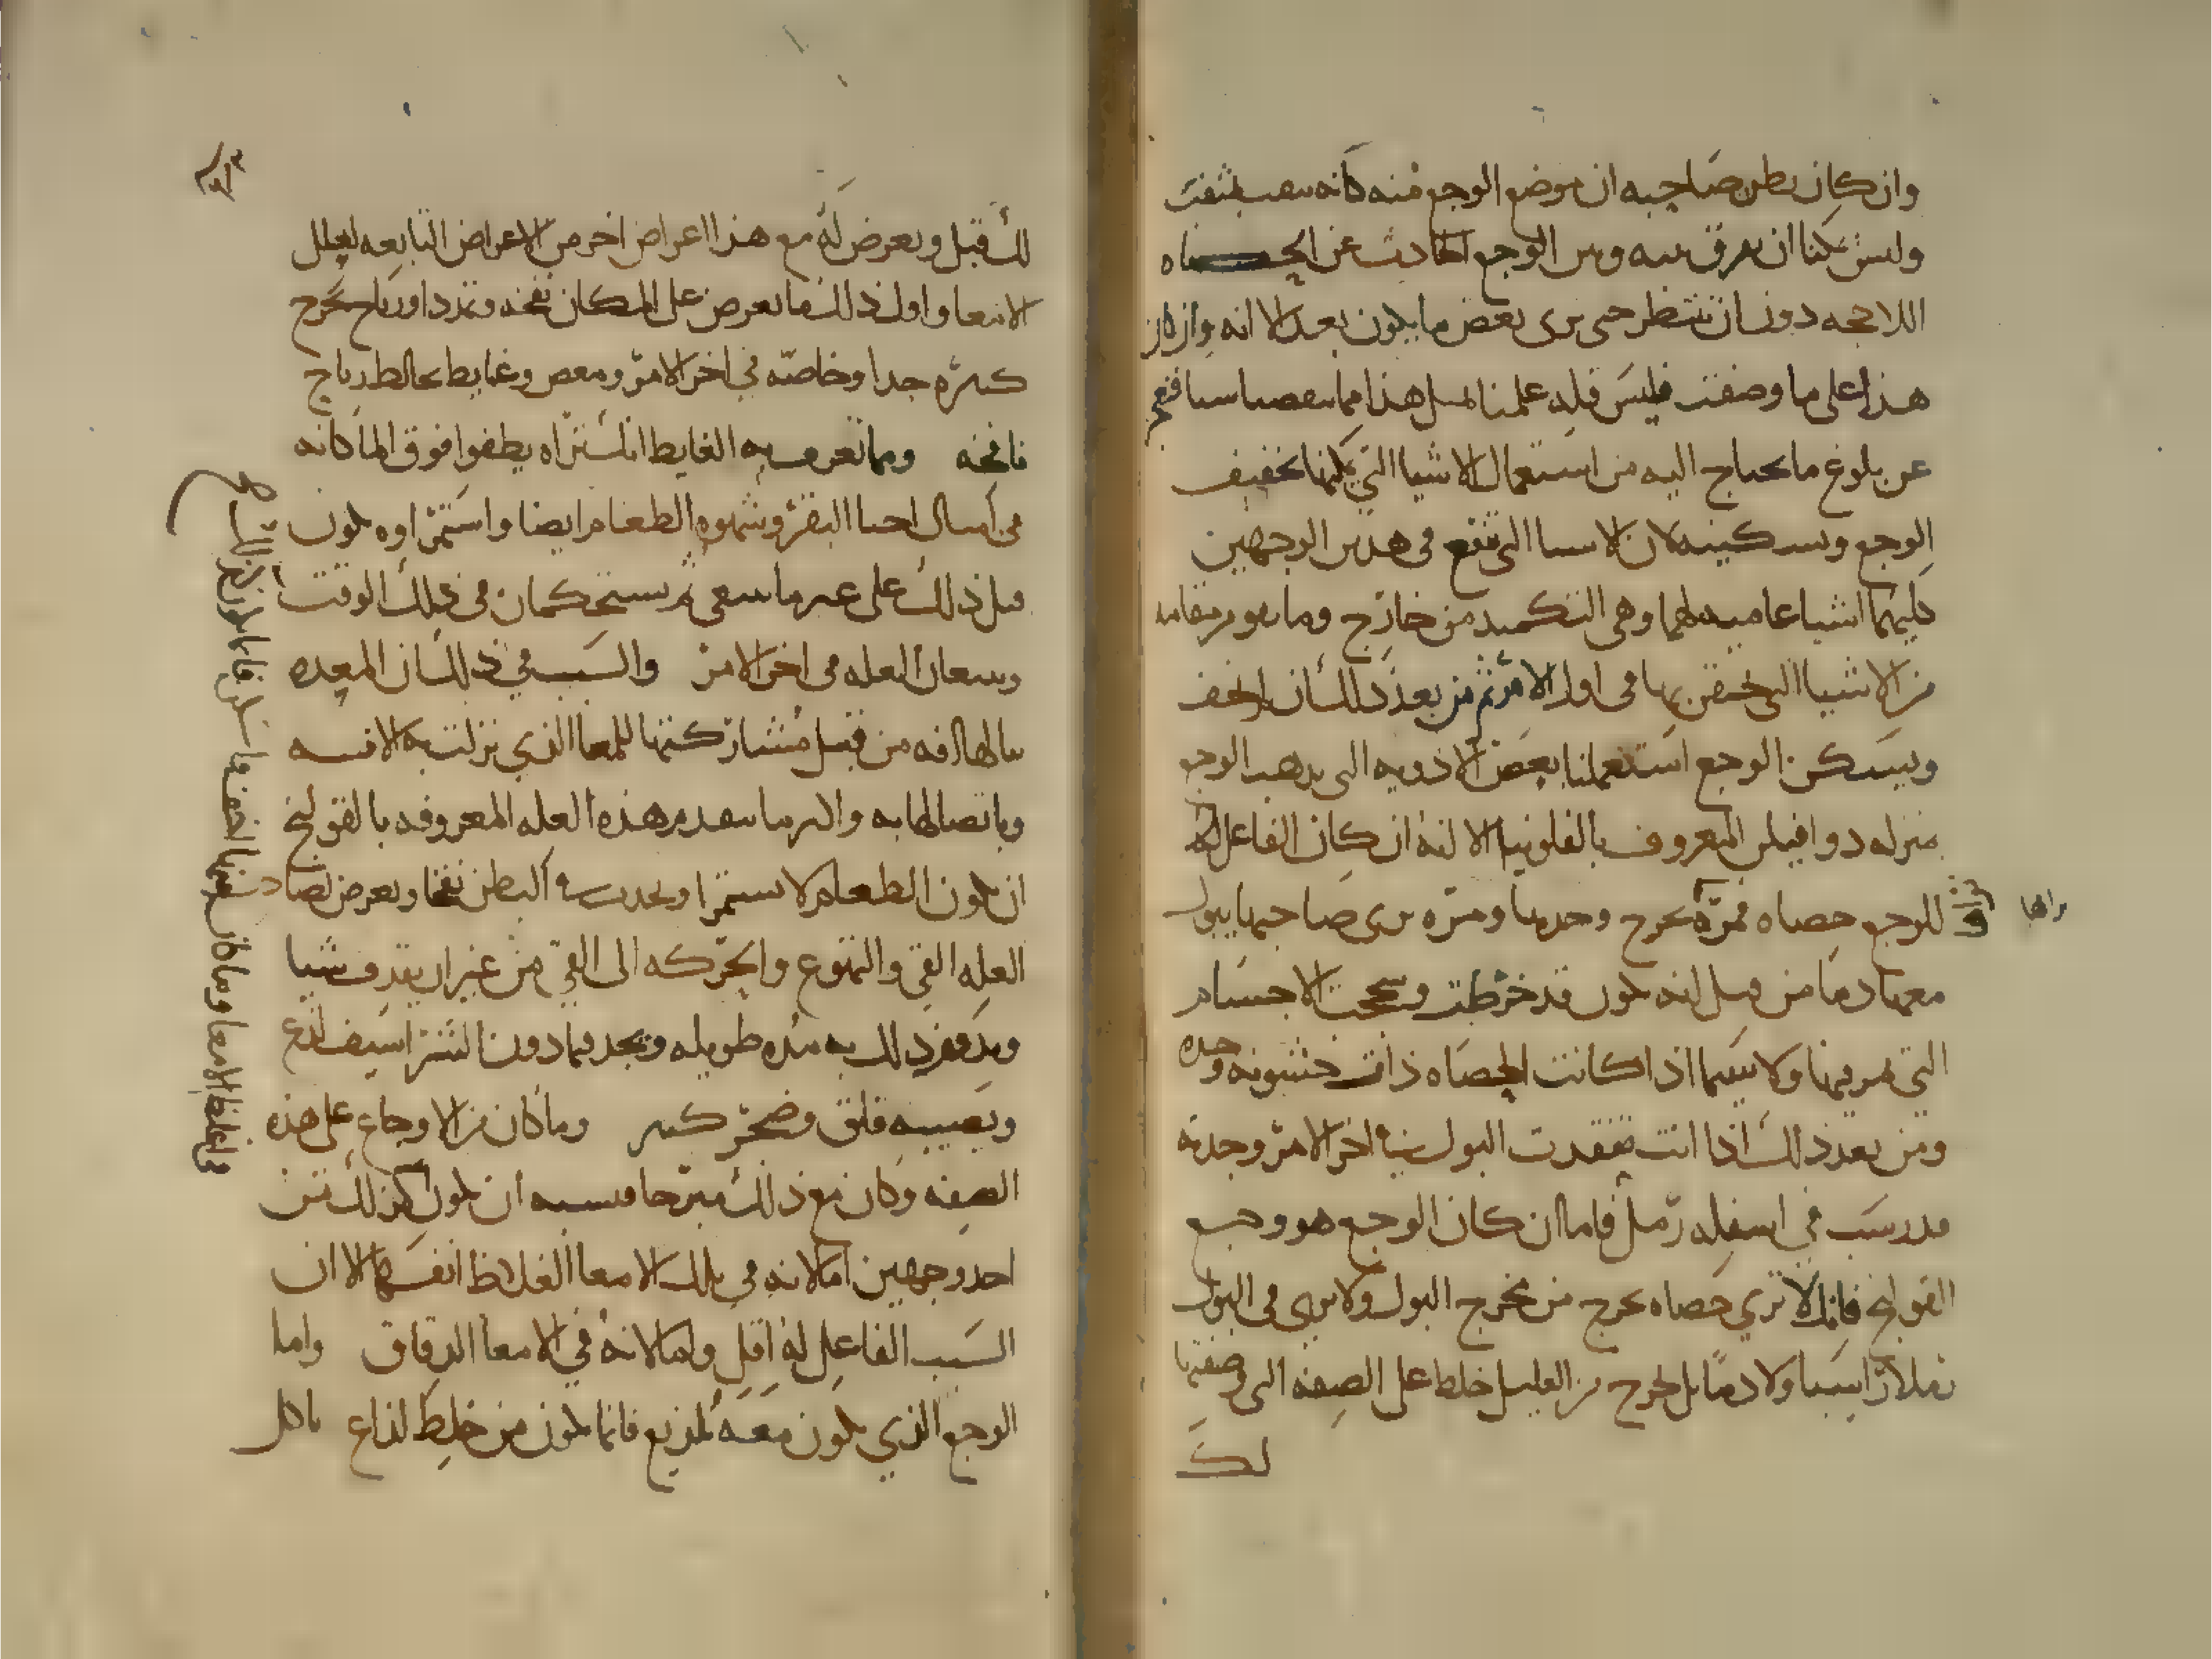 وان كان يظن صاحبه ان موضع الوجع منه كانه يثقب بمثقب
وليس يمكنا ان نفرق بينه وبين الوجع الحادث عن الحصاه
اللاحجه دون ان ننتظر حتى نرى بعض ما يكون بعد الا انه وان كان
هذا على ما وصفت فليس قله علمنا لمثل هذا مما ينقصنا سيا
عن بلوغ ما يحتاج اليه من استعمال الاشيا التي يمكنها تخفيف
الوجع وتسكينه لان الاشيا التي تنفع في هذين الوجهين
كليهما اشيا عاميه لهما وهي التكميد من خارج وما يقوم مقامه
من الاشيا التي يحتقن بها في اول الامر ثم من بعد ذلك ان لم يخف
ويسكن الوجع استعملنا بعض الادويه التي يذهب الوجع
بمنزله دوا فيلن المعروف بالفلونيا الا انه ان كان الفاعل
للوجع حصاه فمره تخرج وحدها ومره يرى صاحبها يبول
معها دما من قبل انه يكون قد خرطت وسحجت الاجسام
التي تمر فيها ولا سيما اذا كانت الحصاه ذات خشونه وحده
ومن بعد ذلك اذا انت تفقدت البول في اخر الامر وجدته
قد رسب في اسفله رمل فاما ان كان الوجع هو وجع
القولنج فانك لا ترى حصاه تخرج من مخرج البول ولا ترى في البول
رملا راسبا ولا دما بل يخرج من العليل خلط على الصفه التي وصفتها
لك
لك قبل ويعرض له مع هذا اعراض اخر من الاعراض التابعه لعلل
الامعا واول ذلك ما يعرض على المكان نفخه وتمدد اورياح تخرج
كثيره جدا وخاصه في اخر الامر ومغص وغايط يخالطه رياح
نافخه ومما تعرف به الغايط انك تراه يطفوا فوق الما كانه
في امثال احثا البقر وشهوه الطعام ايضا واستمراوه يكون
قبل ذلك على غير ما ينبغي ثم يستحكمان في ذلك الوقت
ويتبعان العله في اخر الامر والسبب في ذلك ان المعده
ينالها الافه من قبل مشاركتها للمعا الذي نزلت به الافه
وباتصالها به واكثر ما يتقدم هذه العله المعروفه بالقولنج
ان يكون الطعام لا يستمرا ويحدث في البطن نفخا ويعرض لصاحب
العله القي والتهوع والحركه الى القي من غير ان يقذف شيا
ويدوم ذلك به مده طويله ويجد فيما دون الشراسيف لذع
ويصيبه قلق وضجر كثير وما كان من الاوجاع على هذه
الصفه وكان مع ذلك مبرحا فيشبه ان يكون كذلك من
احد وجهين اما لانه في تلك الامعا الغلاظ انفسها الا ان
السبب الفاعل له اقل واما لانه في الامعا الدقاق واما
الوجع الذي يكون معه تلذيع فانما يكون من خلط لذاع ياكل